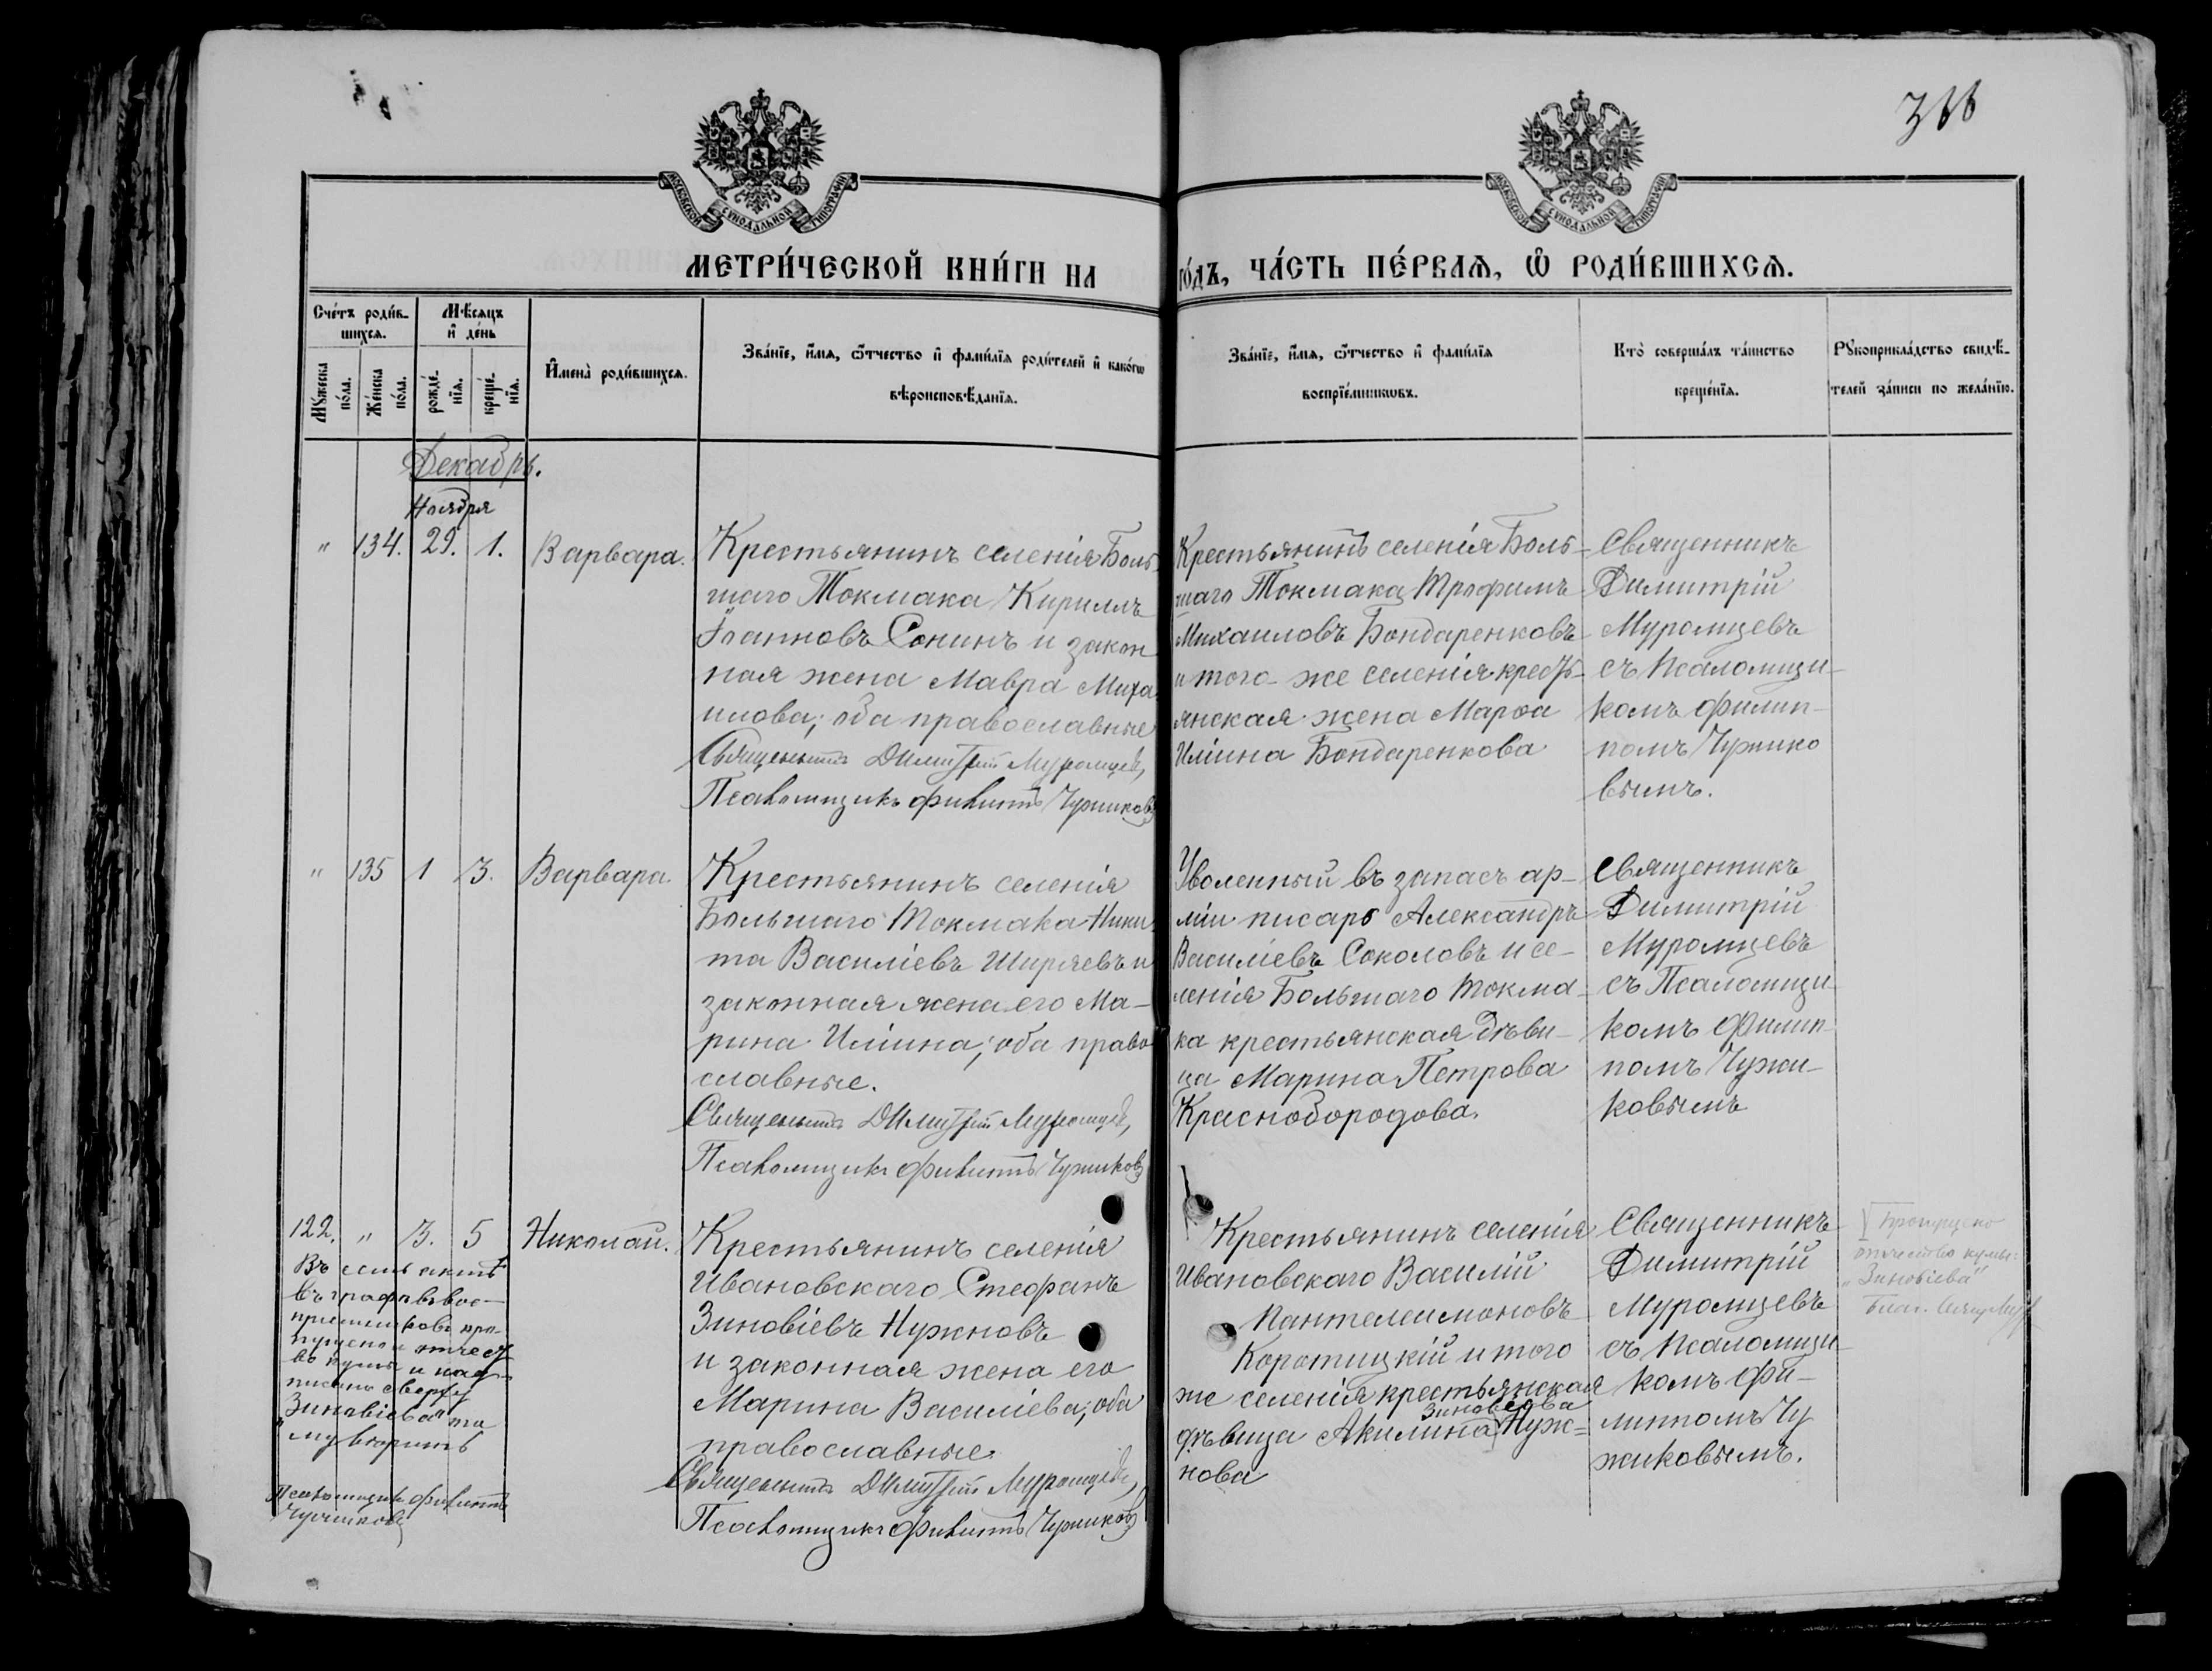 366
МОСКОВСКОЙ СѴНОДАЛЬНОЙ ТИПОГРАФІИ
МОСКОВСКОЙ СѴНОДАЛЬНОЙ ТИПОГРАФІИ
МЕТРИ́ЧЕСКОЙ КНИ́ГИ НА
ГО́ДЪ, ЧА́СТЬ ПЕ́РВАѦ, Ѽ РОДИ́ВШИХСѦ.
Сче́тъ роди́в-
шихсѧ.
Мꙋжеска
по́ла.
Же́нска
по́ла.
Мѣ́сѧцъ
и҆ де́нь
рожде́-
нїѧ.
креще́-
нїѧ.
И҆мена̀ роди́вшихсѧ.
Зва́нїе, и҆́мѧ, ѻ҆́тчество и҆ фами́лїѧ роди́телей и҆ како́гѡ
вѣроисповѣ́данїѧ.
Зва́нїе, и҆́мѧ, ѻ҆́тчество и҆ фами́лїѧ
воспрїе́мникѡвъ.
Кто̀ соверша́лъ та́инство
креще́нїѧ.
Рꙋкоприкла́дство свидѣ́-
телей за́писи по жела́нїю.
Декабрь.
Ноября
" 134. 29. 1. Варвара.
Крестьянинъ селенія Боль-
шаго Токмака Кириллъ
Іоанновъ Сонинъ и закон
ная жена Мавра Миха
илова; оба православные
Священникъ Димитрій Муромцевъ,
Псаломщикъ Филиппъ Чужиковъ
Крестьянинъ селенія Боль-
шаго Токмака Трофимъ
Михаиловъ Бондаренковъ
и того-же селенія кресть-
янская жена Марѳа
Иліина Бондаренкова
Священникъ
Димитрій
Муромцевъ
съ Псаломщи-
комъ Филип-
помъ Чужико
вымъ.
" 135 1 3. Варвара.
Крестьянинъ селенія
Большаго Токмака Ники-
та Василіевъ Ширяевъ и
законная жена его Ма-
рина Иліина; оба право
славные.
Священникъ Димитрій Муромцевъ,
Псаломщикъ Филиппъ Чужиковъ
Уволенный въ запасъ ар-
міи писарь Александръ
Василіевъ Соколовъ и се-
ленія Большаго Токма-
ка крестьянская дѣви-
ца Марина Петрова
Краснобородова.
Священникъ
Димитрій
Муромцевъ
съ Псаломщи-
комъ Филип-
помъ Чужи-
ковымъ
122. " 3. 5 Николай.
Въ семъ актѣ
въ графѣ вос-
пріемниковъ про-
пущено отчест
во кумы и над-
писано сверху
"Зиновіева"
Псаломщикъ Филиппъ
Чужиковъ
Крестьянинъ селенія
Ивановскаго Стефанъ
Зиновіевъ Нужновъ
и законная жена его
Марина Василіева; оба
православные.
Священникъ Димитрій Муромцевъ,
Псаломщикъ Филиппъ Чужиковъ
Крестьянинъ селенія
Ивановскаго Василій
Пантелеимоновъ
Коротицкій и того
же селенія крестьянская
Зиновіева
дѣвица Акилина Нуж=
нова
Священникъ
Димитрій
Муромцевъ
съ Псаломщи-
комъ Фи-
липпомъ Чу
жиковымъ.
Пропущено
отчество кумы:
"Зиновіева"